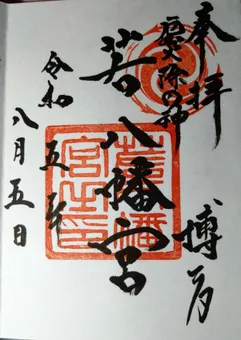 奉拝
博多
厄除の神
若八幡宮
令和五年
八月五日
若八幡宮之印